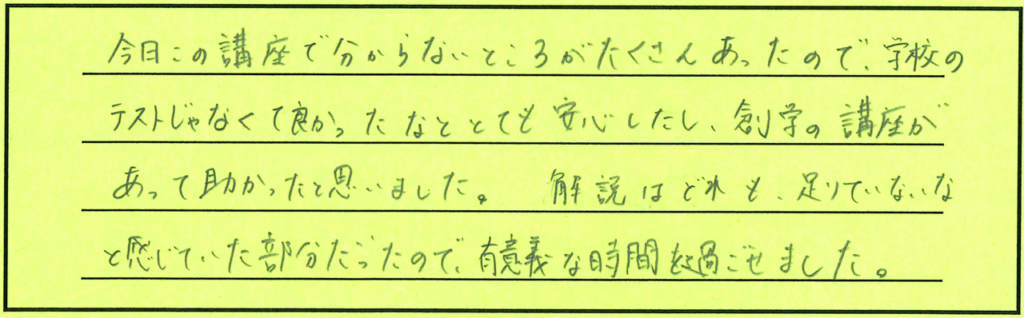 今日この講座で分からないところがたくさんあったので、学校の
テストじゃなくて良かったなととても安心したし、創学の講座が
あって助かったと思いました。 解説はどれも、足りていないな
と感じていた部分だったので、有意義な時間を過ごせました。